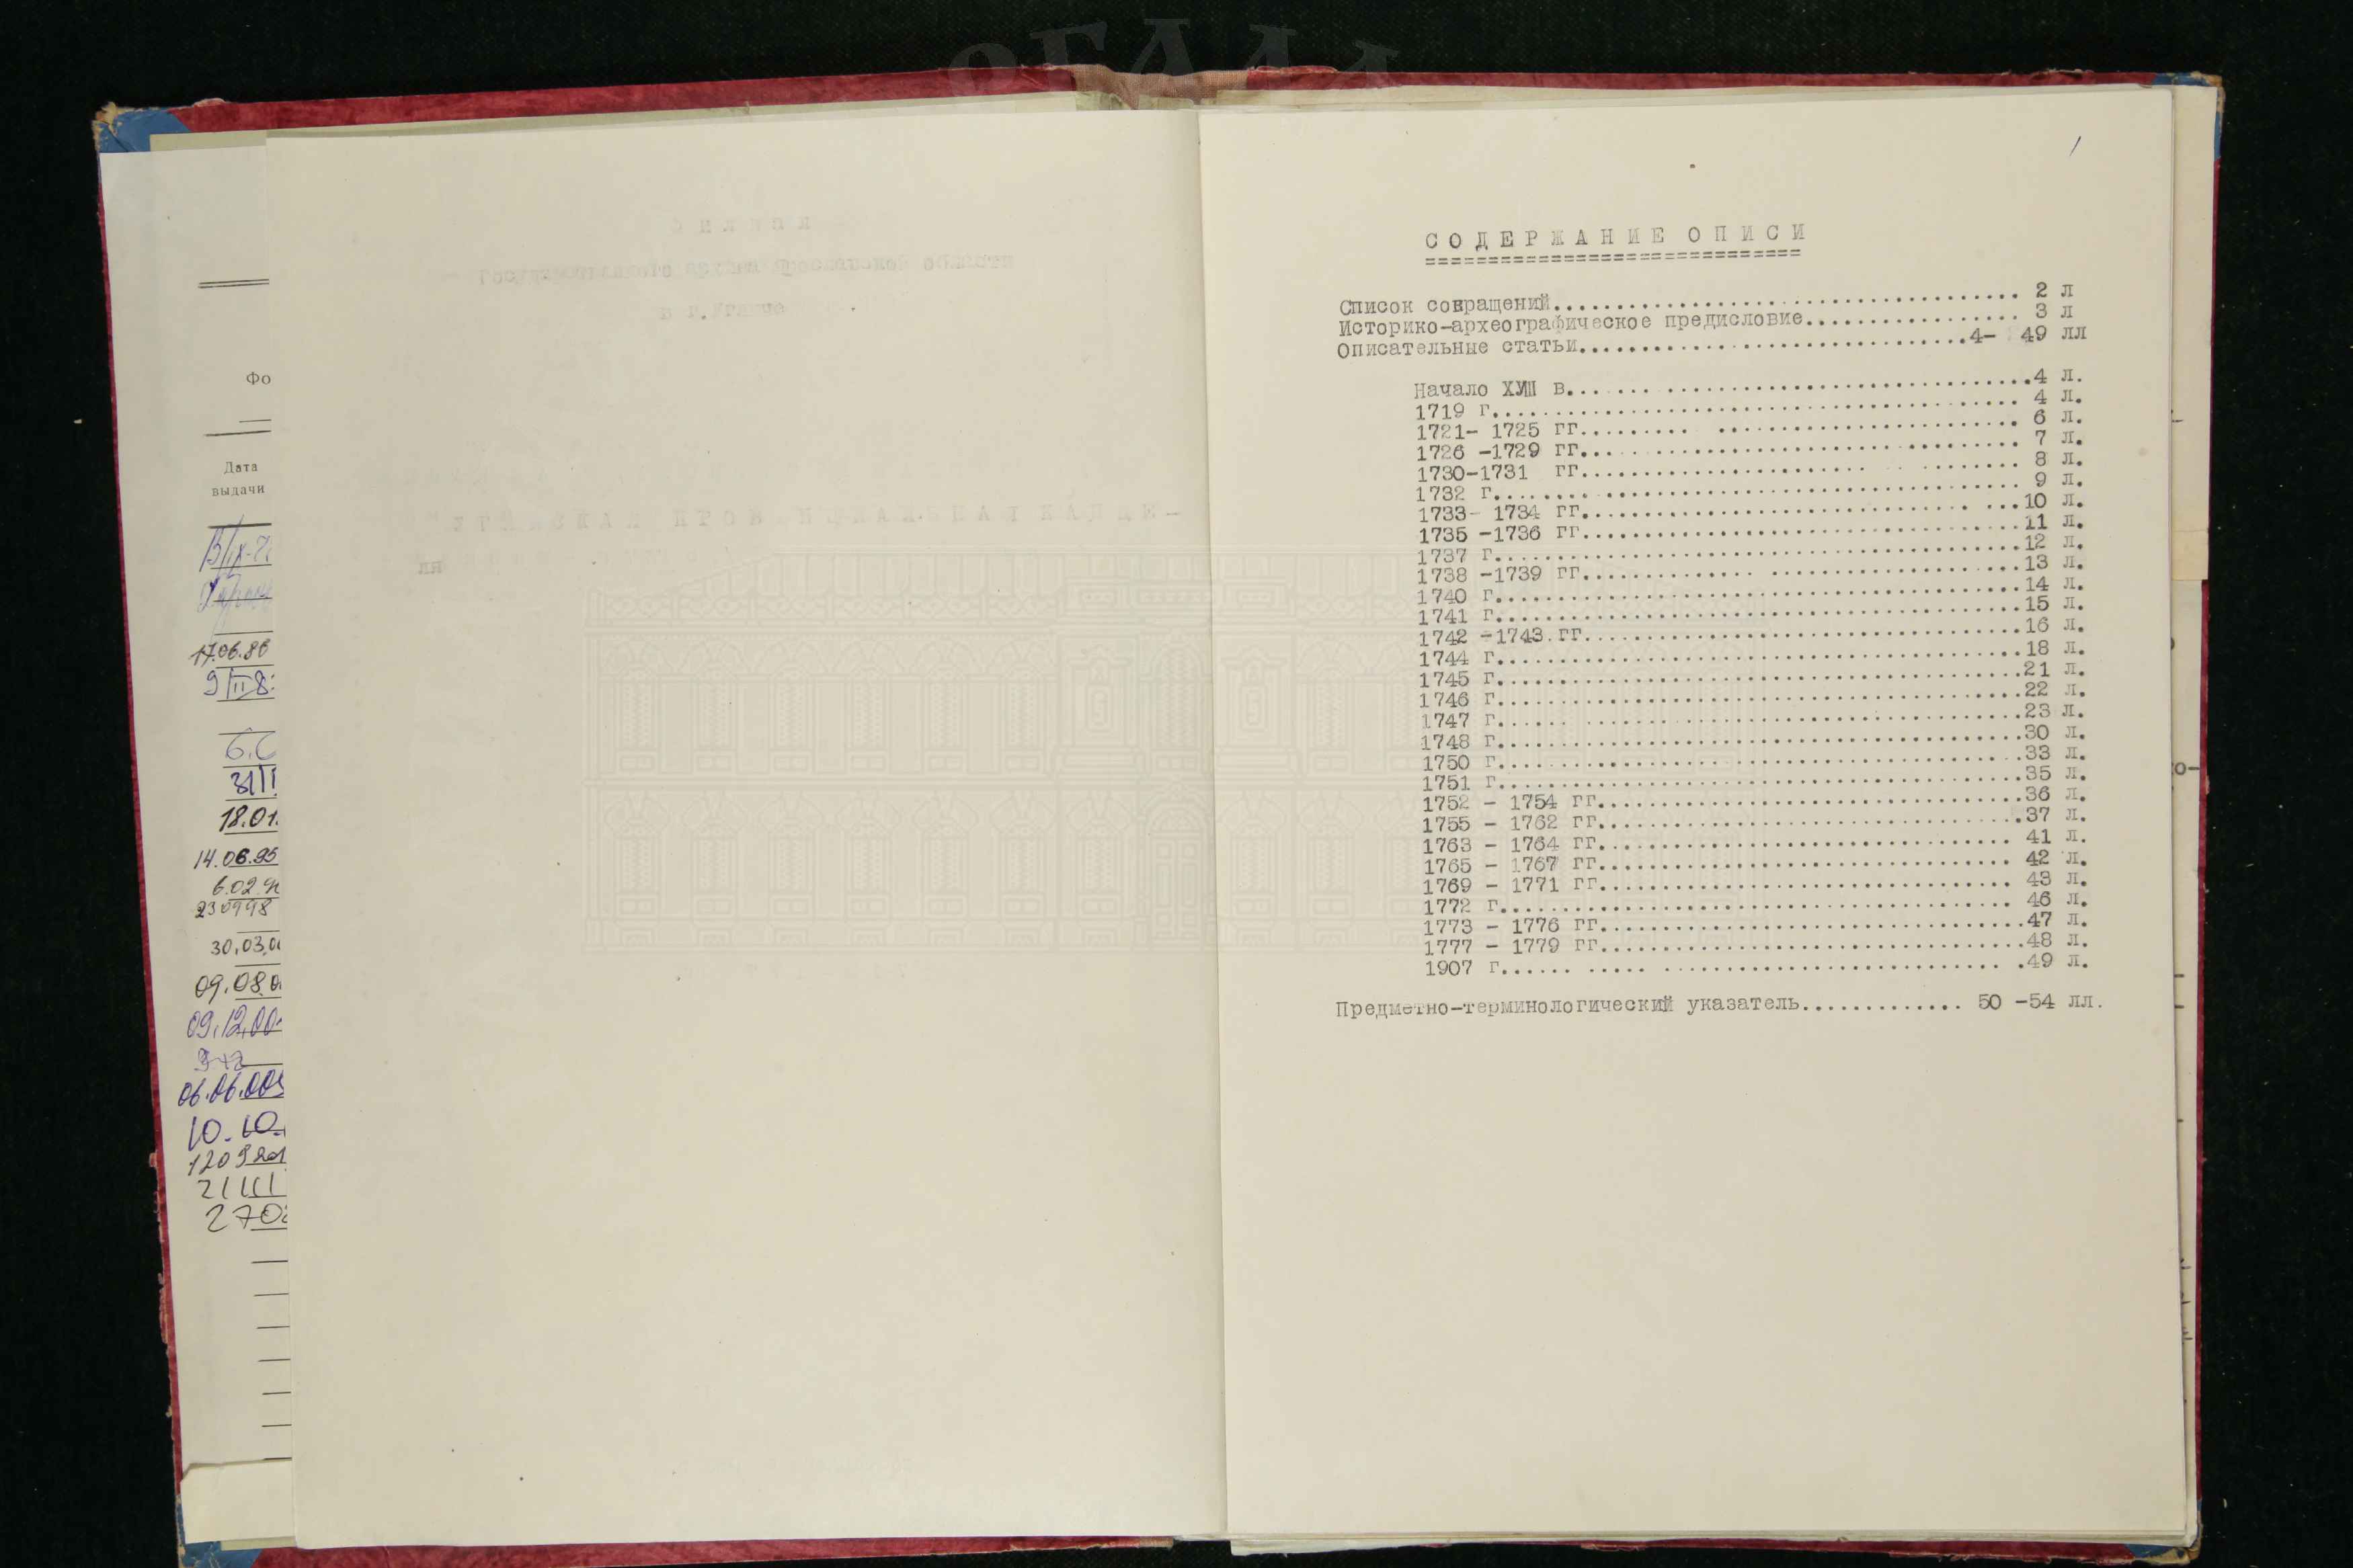 Фо
Дата
выдачи
17.06.86
18.01.
14.06.95
6.02.9
30.03.0
09.08.0
09.12.00
06.06.00
10.10.
Филиал
Государственного архива Ярославской области
в г.Угличе
УГЛИЧСКАЯ ПРОВИНЦИАЛЬНАЯ КАНЦЕ-
ЛЯ
1
СОДЕРЖАНИЕ ОПИСИ
Список сокращений.................................... 2 л
Историко-археографическое предисловие................. 3 л
Описательные статьи...............................4- 49 лл
Начало ХУШ в.....................................4 л.
1719 г.......................................... 4 л.
1721- 1725 гг................................... 6 л.
1726 -1729 гг................................... 7 л.
1730-1731 гг................................... 8 л.
1732 г.......................................... 9 л.
1733- 1734 гг...................................10 л.
1735 -1736 гг...................................11 л.
1737 г..........................................12 л.
1738 -1739 гг...................................13 л.
1740 г..........................................14 л.
1741 г..........................................15 л.
1742 -1743.гг...................................16 л.
1744 г..........................................18 л.
1745 г..........................................21 л.
1746 г..........................................22 л.
1747 г..........................................23 л.
1748 г..........................................30 л.
1750 г..........................................33 л.
1751 г..........................................35 л.
1752 - 1754 гг..................................36 л.
1755 - 1762 гг..................................37 л.
1763 - 1764 гг................................. 41 л.
1765 - 1767 гг................................. 42 л.
1769 - 1771 гг................................. 43 л.
1772 г......................................... 46 л.
1773 - 1776 гг..................................47 л.
1777 - 1779 гг..................................48 л.
1907 г..........................................49 л.
Предметно-терминологический указатель............. 50 -54 лл.